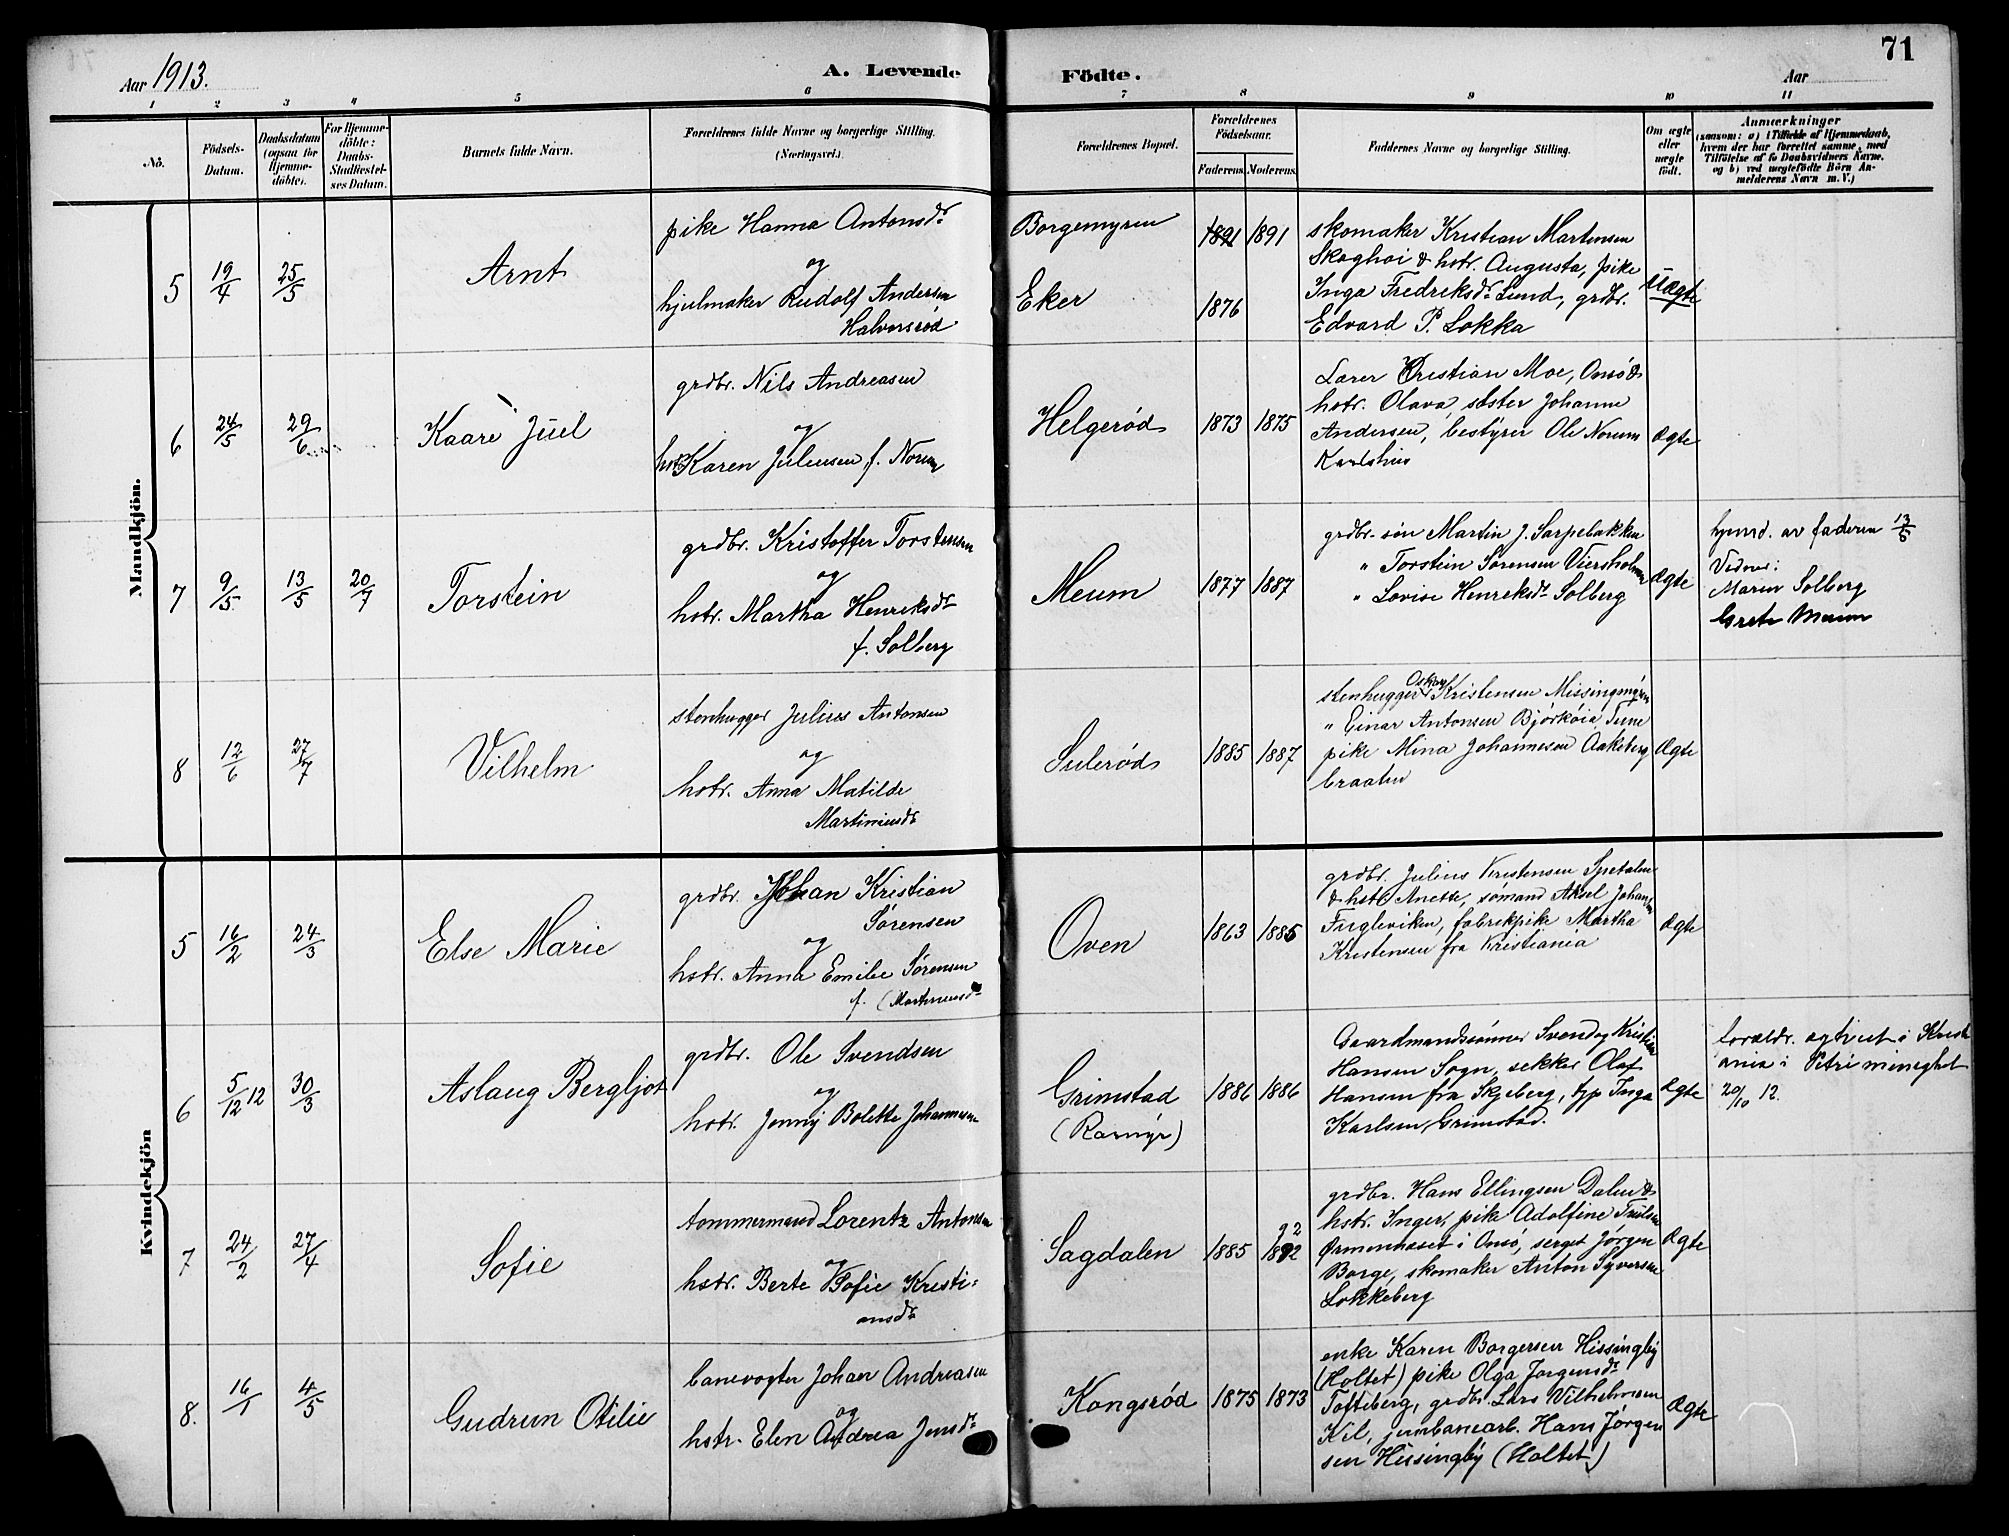 71
Aar 1913.
A. Levende Födte.
Aar
1 2 3 4 5 6 7 8 9 10 11
Nô.
Födsels-Datum.
Daabsdatum (ogsaa for Hjemme-döbte).
For Hjemme-döbte: Daabs-Stadfæstel-ses Datum.
Barnets fulde Navn.
Forældrenes fulde Navne og borgerlige Stilling. (Næringsvei.)
Forældrenes Bopæl.
Forældrenes Födselsaar.
Faderens. Moderens.
Faddernes Navne og borgerlige Stilling.
Om ægte eller uægte født.
Anmærkninger
(saasom: a) i Tilfælde af Hjemmedaab,
hvem der har forrettet samme, med
Tilföielse af to Daabsvidners Navne.
og b) ved uægtefödte Börn An-
melderens Navn m. V.)
Mandkjön.
5 19/4 25/5 Arnt
pike Hanna Antonsdr
og
hjulmaker Rudolf Andersen
Halvorsrød
Borgemyren
Eker
1891 1891
1876
skomaker Kristian Martensen
Skoghøi & hstr. Augusta, pike
Inga Fredriksdr Lund, grdbr.
Edvard P. Løkka
Uægte
6 24/5 29/6 Kaare Juel
grdbr. Nils Andreasen
og
hstr Karen Juliussen f. Norum
Helgerød 1873 1875
Lærer Kristian Moe, Onsø &
hstr. Olava, søster Johanne
Andersen, bestyrer Ole Norum
Karlshus
Ægte
7 9/5 13/5 20/7 Torstein
grdbr. Kristoffer Torstensen
og
hstr. Martha Henriksdr
f. Solberg
Meum 1877 1887
grdbr. søn Martin J. Sarpebakken
" Torstein Sørensen Viersholmen
" Lovise Henriksdr Solberg
Ægte
hjemd. av faderen 13/5
Vidner:
Maren Solberg
Grete Meum
8 12/6 27/7 Vilhelm
stenhugger Julius Antonsen
og
hstr. Anna Matilde
Martiniusdr
Sulerød 1885 1887
stenhugger Oskar Kristensen Missingmyren
" Einar Antonsen Bjørkøia Tune
pike Mina Johannesen Aakeberg
braaten
Ægte
Kvindekjön
5 16/2 24/3 Else Marie
grdbr. Johan Kristian
Sørensen
og
hstr. Anna Emilie Sørensen
f. (Martinusdr
Oven 1863 1885
grdbr. Julius Kristensen Spetalen
& hstr Anette, sømand Aksel Johansen
Fugleviken, fabrikpike Martha
Kristensen fra Kristiania
Ægte
6 5/12 12 30/3 Aslaug Bergljot
grdbr. Ole Svendsen
og
hstr. Jenny Bolette Johannesen
Grimstad
(Rørmyr)
1886 1886
Gaardmandssønner Svend og Kristian
Hansen Sogn, sekkes Olaf
Hansen fra Skjeberg, tjp Inga
Karlsen, Grimstad.
Ægte
forældr. egtviet i Kristi
ania i Petri menighet
20/10 12.
7 24/2 27/4 Sofie
tømmermand Lorentz Antonsen
og
hstr. Berte Sofie Kristi=
ansdr
Sagdalen 1885 1892 92
grdbr. Hans Ellingsen Dalen &
hstr. Inger, pike Adolfine
i Onsø, serget Jørgen
Borge, skomaker Anton Syversen
Løkkeberg
Ægte
8. 16/1 4/5 Gudrun Otilie
banevogter Johan Andreasen
og
hstr. Elen Andrea Jensdr
Kongsrød 1875 1873
enke Karen Borgersen Hissingby
(Holtet) pike Olga Jørgensdr
Tofteberg, grdbr. Lars Vilhelmsen
Kil, jernbanearb. Hans Jørgen
sen Hissingby (Holtet)
Ægte